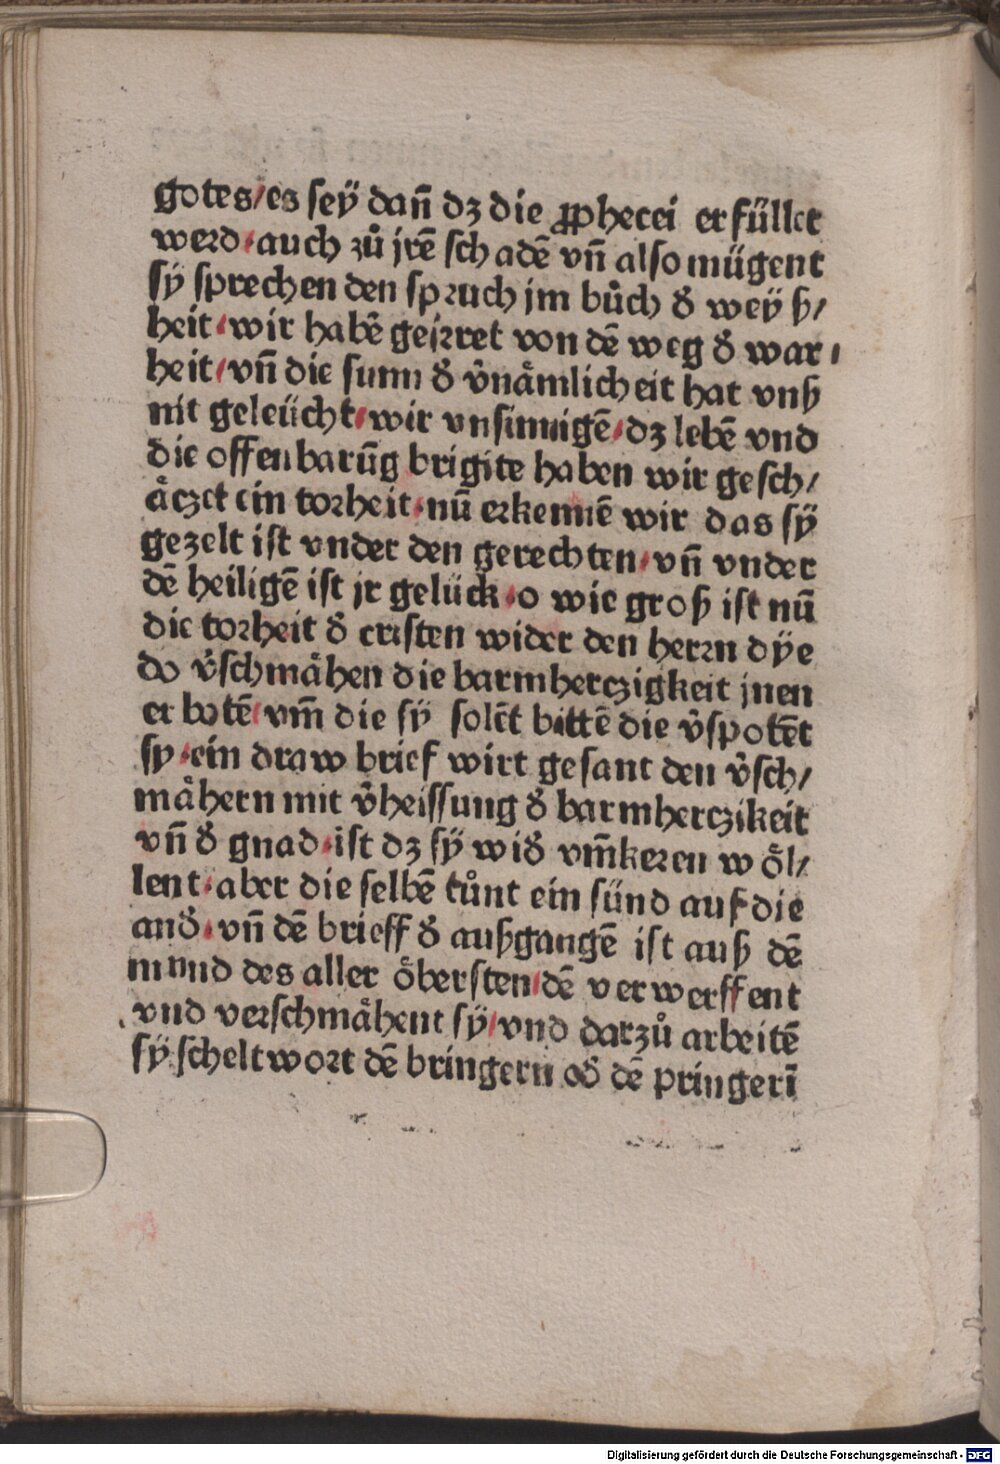 gotes/es sey̋ dan̄ dz die ꝓphecei erfüllet
werd·auch zů jrē schadē vn̄ also mügent
sy̋ sprechen den spruch jm bůch d̕ wey̋ß/
heit·wir habē gejrret von dē weg d̕ war/
heit/vn̄ die sunn d̕ v̕nåmlicheit hat vnß
nit geleücht/wir vnsinnigē/dz lebē vnd
die offenbarūg brigite haben wir gesch/
åczet ein torheit·nū erkennē wir das sy̋
gezelt ist vnder den gerechten/vn̄ vnder
dē heiligē ist jr gelück·o wie groß ist nū
die torheit d̕ cristen wider den herrn dy̋e
do v̕schmåhen die barmherczigkeit jnen
erbotē/vm̄ die sy̋ solēt bittē die v̕spotēt
sy·ein draw brief wirt gesant den v̕sch/
måhern mit v̕heissung d̕ barmherczikeit
vn̄ d̕ gnad·ist dz sy̋ wid̕ vm̄keren wöl/
lent·aber die selbē tůnt ein sünd auf die
and̕·vn̄ dē brieff d̕ außgangē ist auß dē
mund des aller öbersten/dē verwerffent
vnd verschmåhent sy̋/vnd darzů arbeitē
sy̋ scheltwort dē bringern od̕ dē pringerī
Digitalisierung gefördert durch die Deutsche Forschungsgemeinschaft - DFG